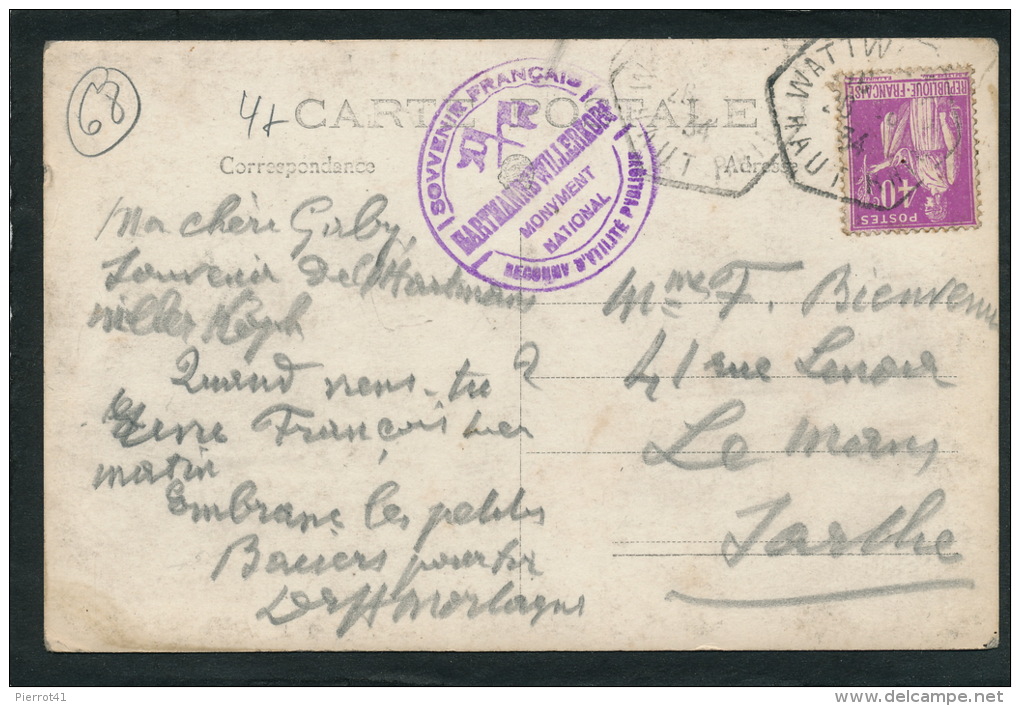 68
41
CARTE POSTALE
Correspondance
Adresse
SOVVENIR FRANÇAIS
HARTMANNSWILLERKOPF
MONVMENT
NATIONAL
RECONNV D'VTILITÉ PVBLIQVE
WATTW
HAUT-RHIN
34
HAUT RHIN
34
REPUBLIQUE-FRANÇAISE
40c
POSTES
Ma chère Gisby,
Souvenir de l'Hartmans
willer Koph
Quand viens-tu ?
François
matin
Embrasse les petites
Baisers pour toi
Mme F. Bienvenu
41 rue
Le Mans
Sarthe
Pierrot41
delcampe.net